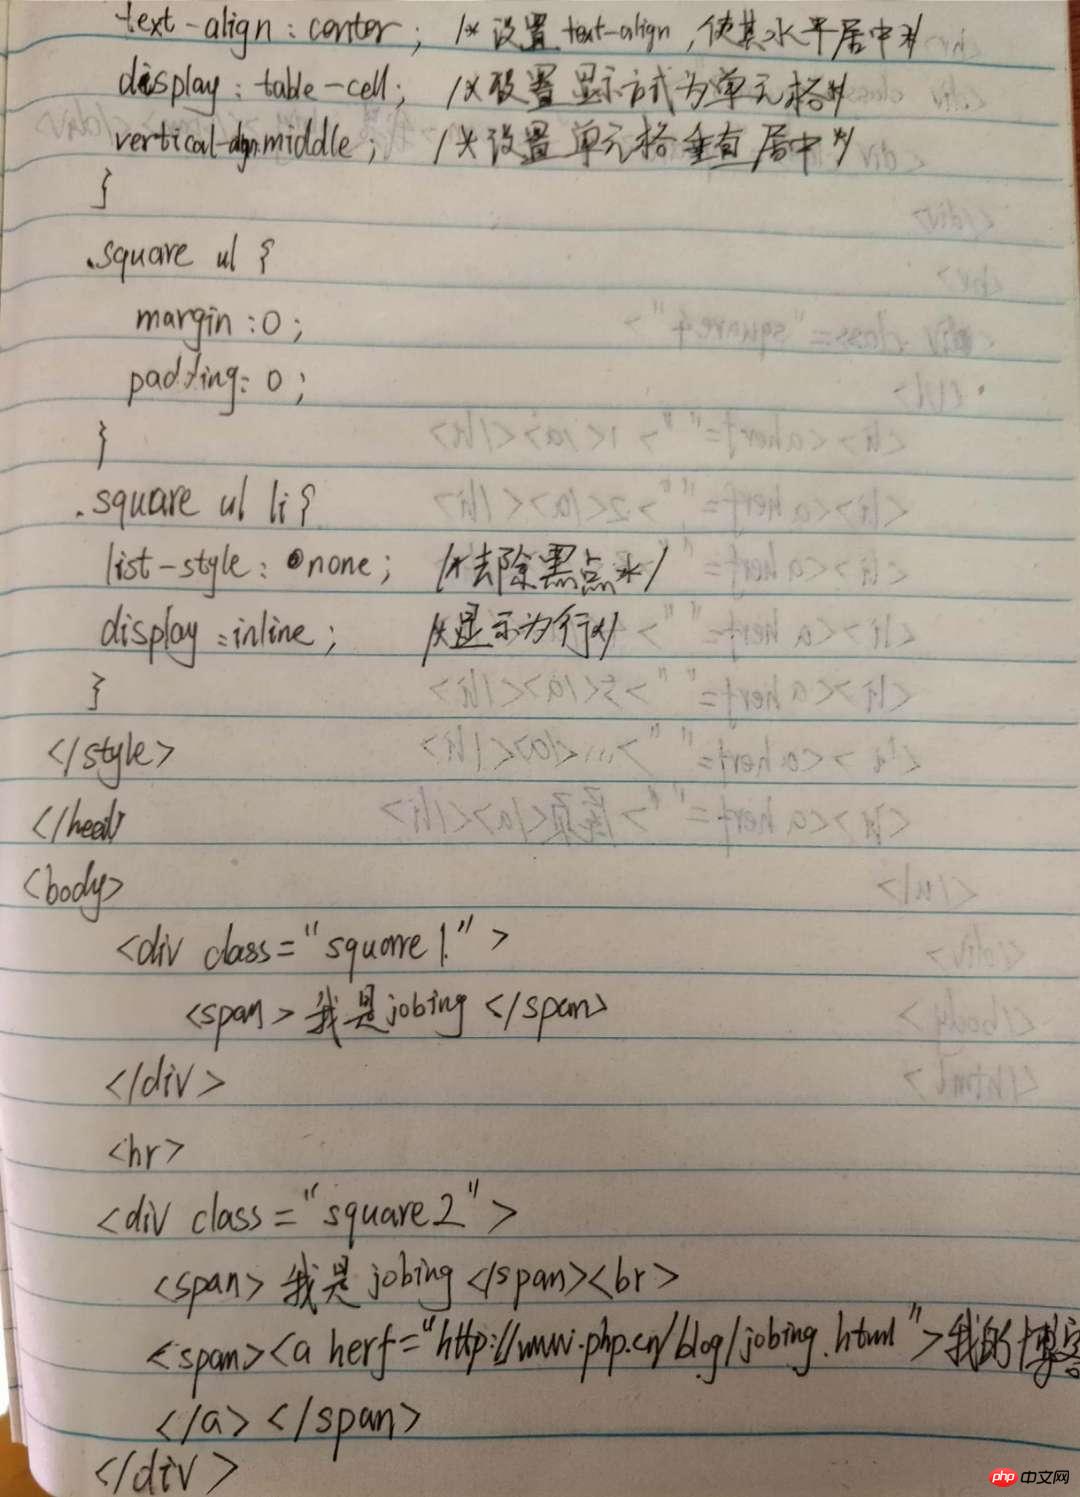 text-align : center ; /* 设置 text-align , 使其水平居中 */
display : table-cell ; /* 设置显示方式为单元格 */
vertical-align: middle ; /* 设置单元格垂直居中 */
}
.square ul {
margin : 0 ;
padding : 0 ;
}
.square ul li {
list-style : none ; /* 去除黑点 */
display : inline ; /* 显示为行 */
}
</style>
</head>
<body>
<div class="square1">
<span>我是jobing</span>
</div>
<hr>
<div class="square2">
<span>我是jobing</span><br>
<span><a herf="http://www.php.cn/blog/jobing.html">我的博客
</a></span>
</div>
php 中文网